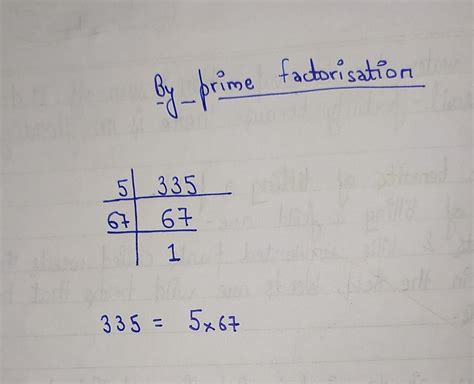 By prime factorisation
5 | 335
67 | 67
1
335 = 5×67